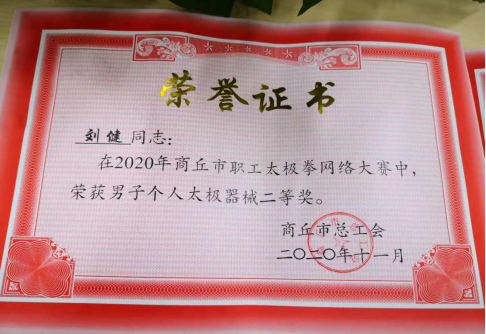 荣誉证书
刘健同志:
在2020年商丘市职工太极拳网络大赛中,
荣获男子个人太极器械二等奖。
商丘市总工会
二〇二〇年十一月